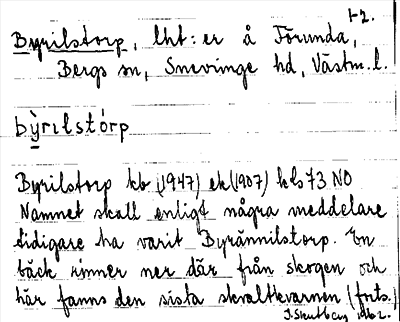 1-2.
Byrilstorp, lht:er å Förunda,
Bergs sn, Snevringe hd, Västm.l.
bỳrılstórp
Byrilstorp kb (1947) ek(1907) hls 73 NO
Namnet skall enligt några meddelare
tidigare ha varit Byrännilstorp. En
bäck rinner ner där från skogen och
här fanns den sista skvaltkvarnen (forts.)
1962.